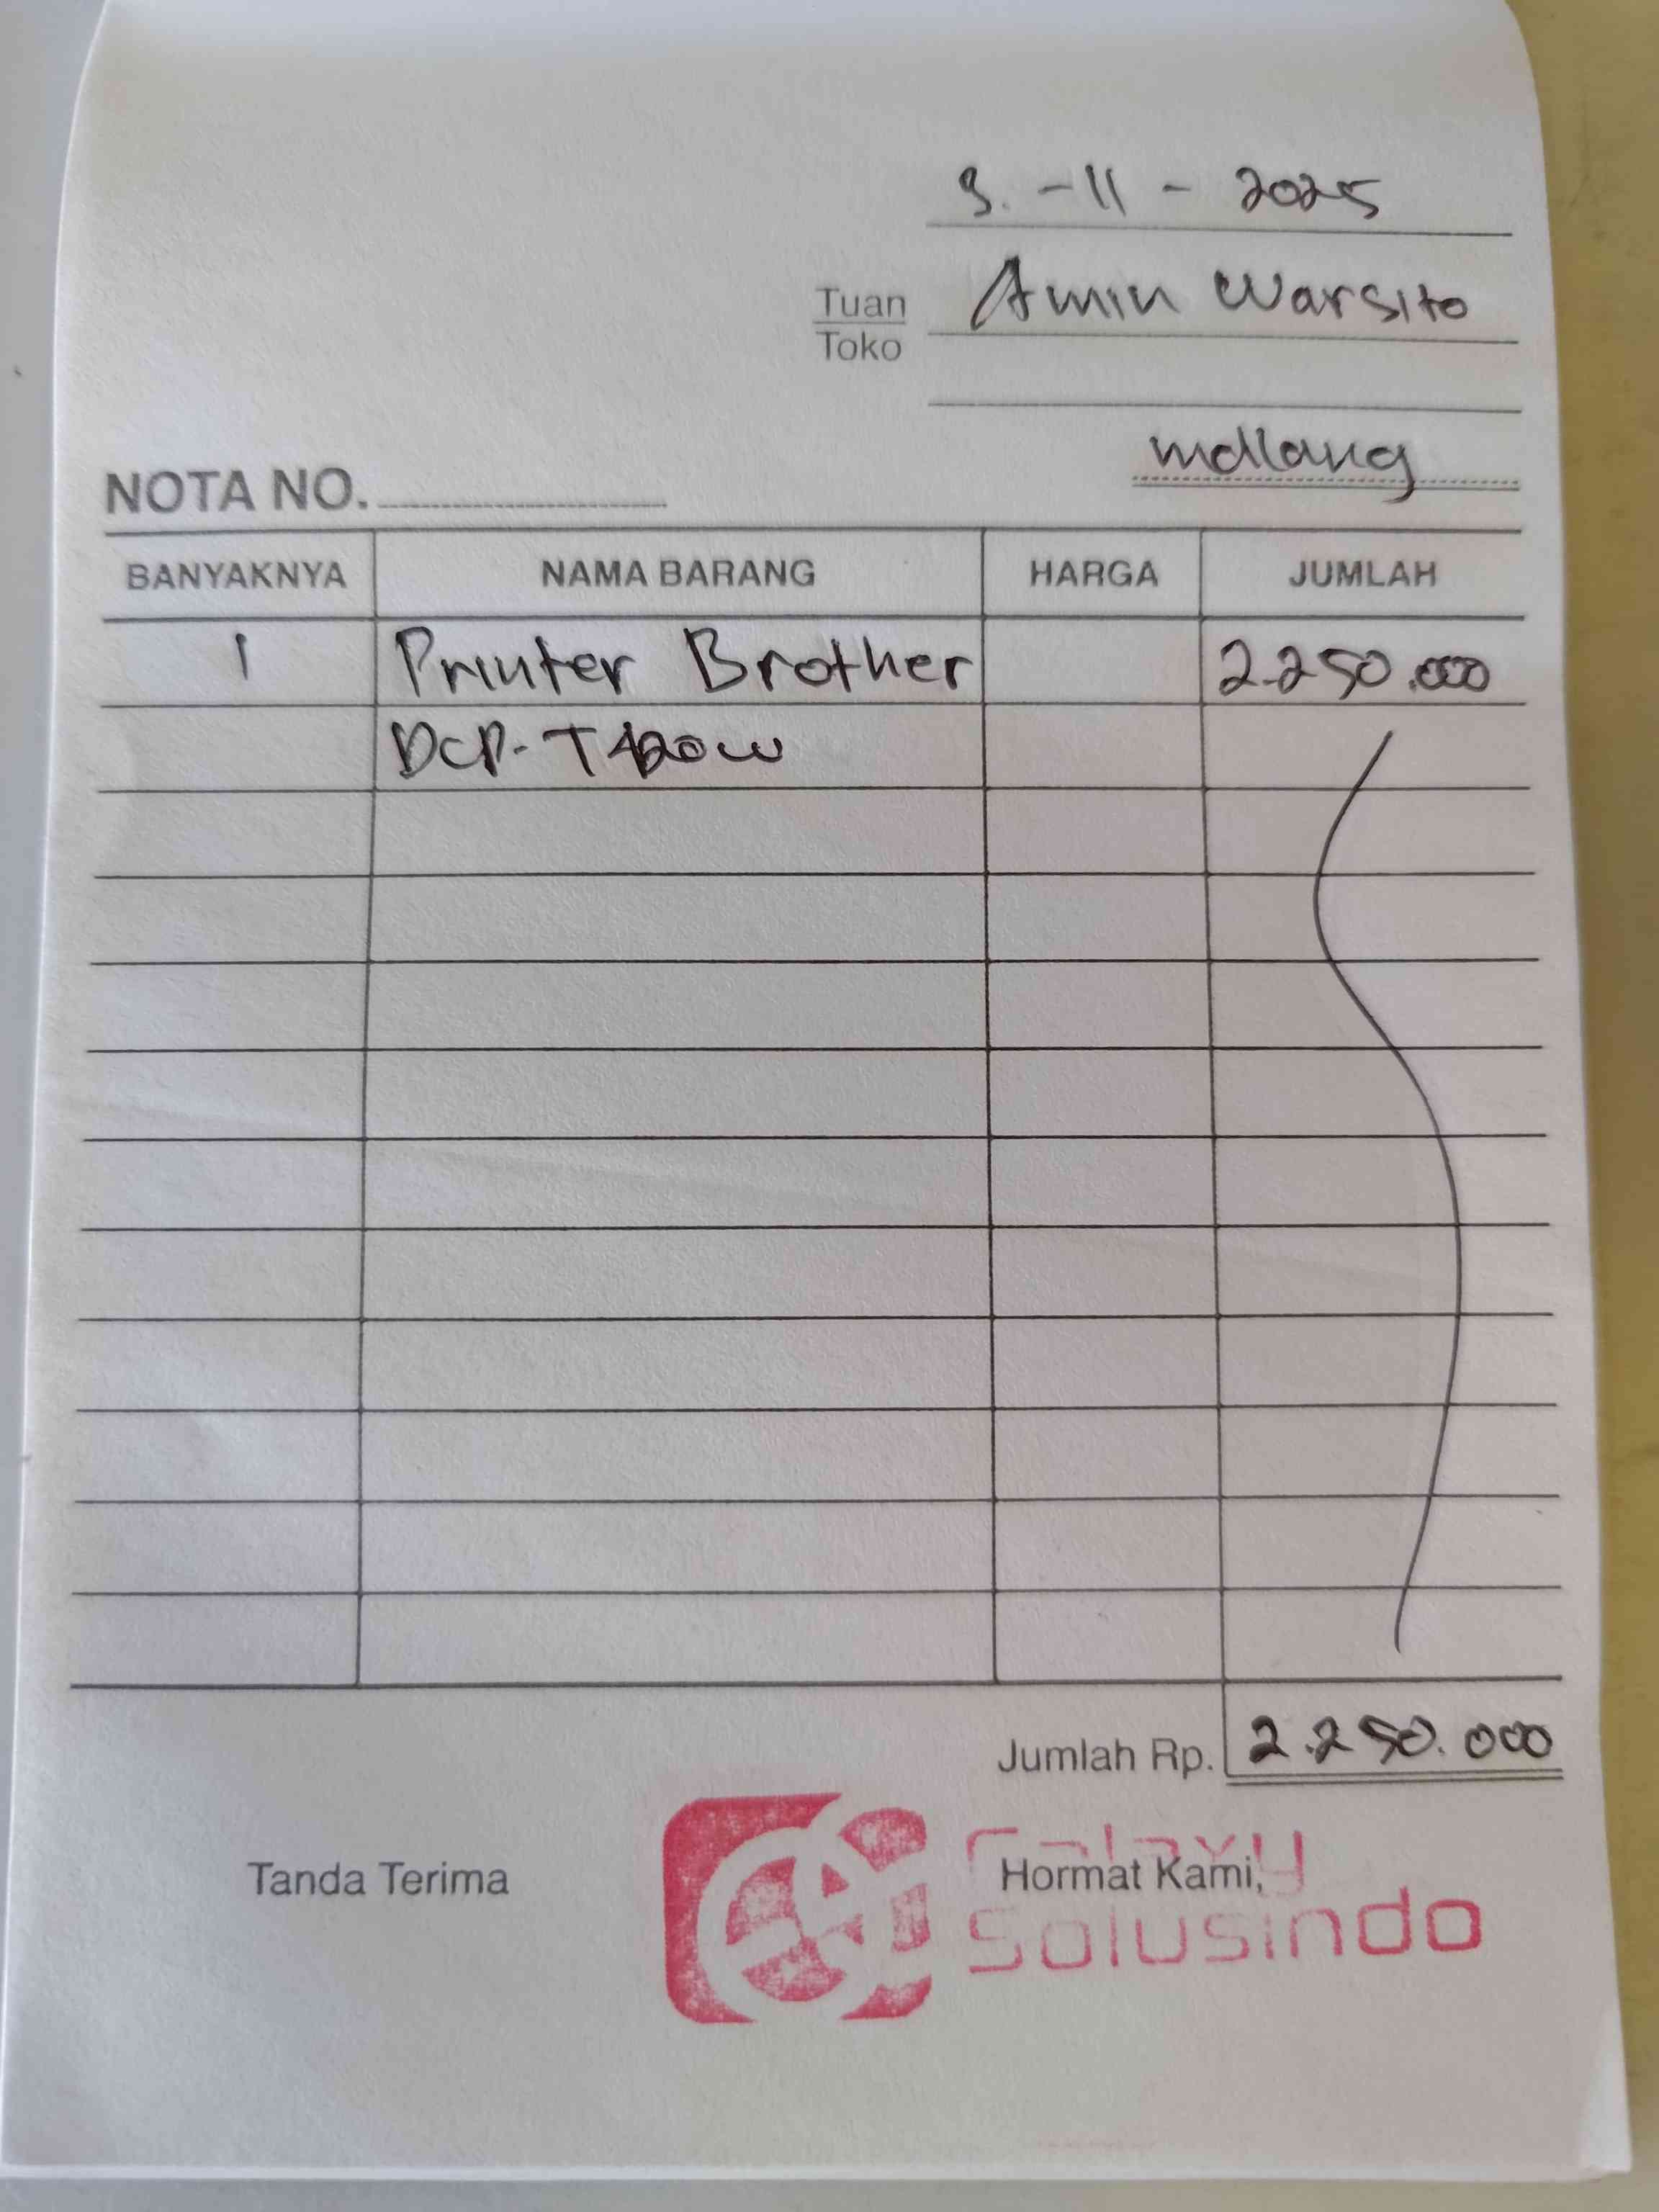 9. - 11 - 2025
Tuan Amin Warsito
Toko
malang
NOTA NO.
BANYAKNYA NAMA BARANG HARGA JUMLAH
1 Printer Brother 2.250.000
DCP-T420W
Jumlah Rp. 2.250.000
Tanda Terima Hormat Kami,
Galaxy
Solusindo